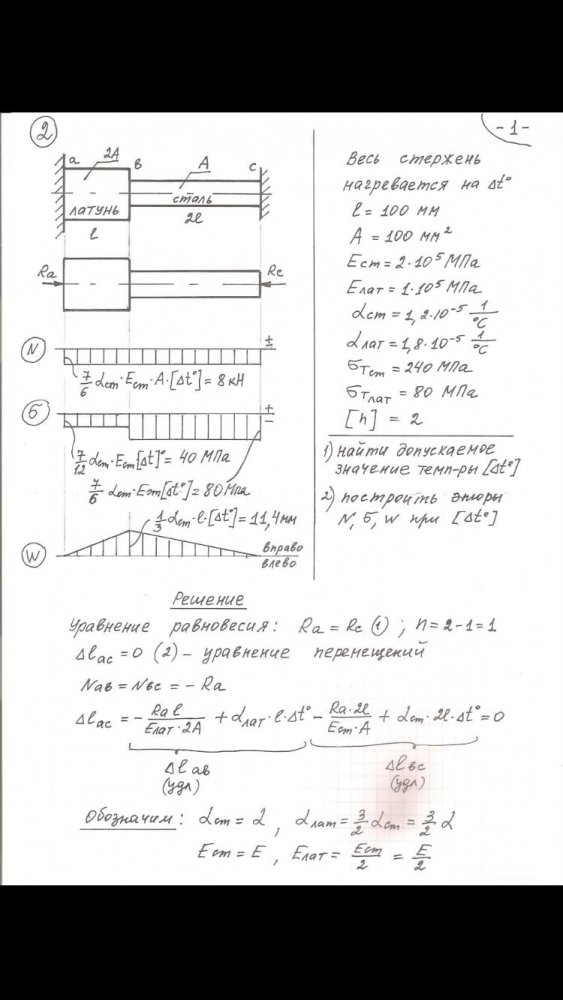 2
- 1 -
a 2A в A c
латунь сталь
l 2l
Ra Rc
N + −
7/6 αст·Eст·A·[Δt°] = 8 кН
б + −
7/12 αст·Eст[Δt]° = 40 МПа
7/6 αст·Eст[Δt°] = 80 МПа
1/3 αст·l·[Δt°] = 11,4 мм
W вправо
влево
Весь стержень
нагревается на Δt°
l = 100 мм
A = 100 мм²
Eст = 2·10⁵ МПа
Eлат = 1·10⁵ МПа
αст = 1,2·10⁻⁵ 1/°C
αлат = 1,8·10⁻⁵ 1/°C
бTст = 240 МПа
бTлат = 80 МПа
[n] = 2
1) найти допускаемое
значение темп-ры [Δt°]
2) построить эпюры
N, б, W при [Δt°]
Решение
Уравнение равновесия: Ra = Rc (1) ; n = 2 - 1 = 1
Δlac = 0 (2) – уравнение перемещений
Nав = Nвс = − Ra
Δlac = − Ra l/Eлат·2A + αлат·l·Δt° − Ra·2l/Eст·A + αст·2l·Δt° = 0
Δl ав Δl вс
(удл) (удл)
Обозначим: αст = α , αлат = 3/2 αст = 3/2 α
Eст = E , Eлат = Eст/2 = E/2